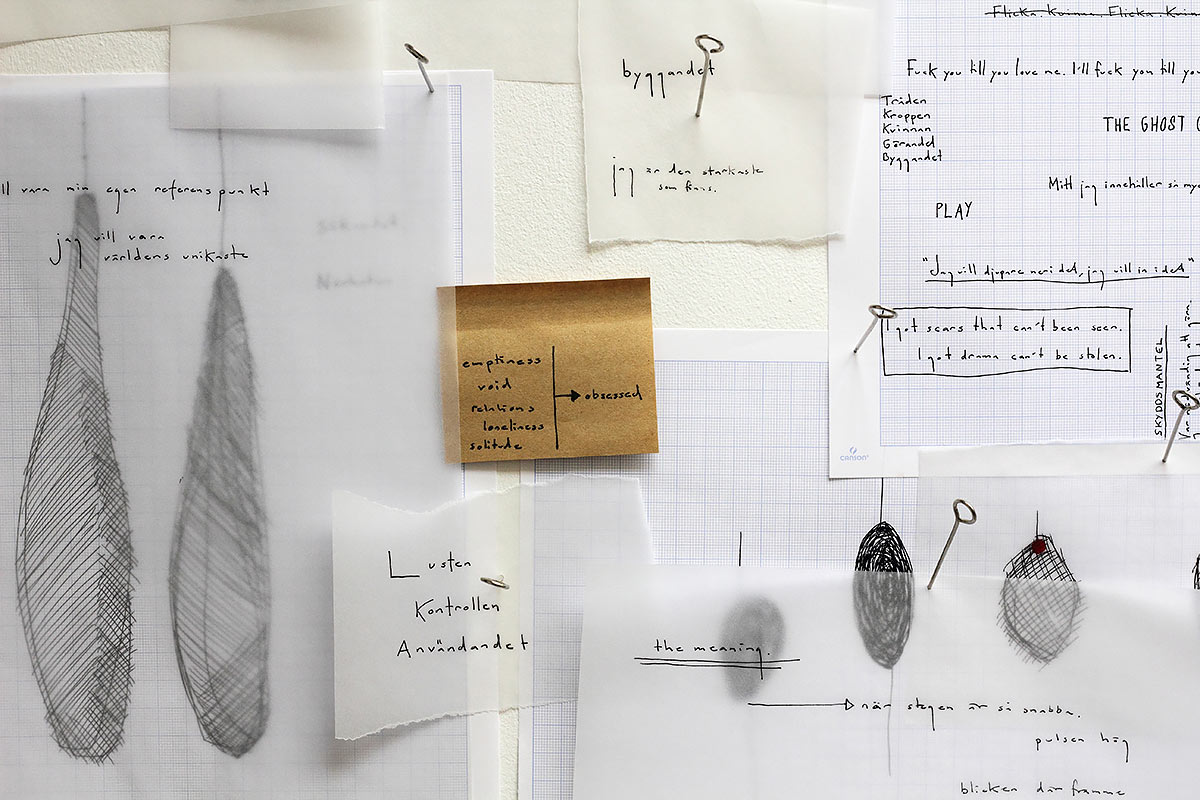 ll vara min egen referenspunkt
jag vill vara
världens unikaste
byggandet
jag är den starkaste
som finns.
emptiness
void
relations
loneliness
solitude
obsessed
Lusten
Kontrollen
Användandet
Flicka. Kvinna. Flicka. Kvin
Fuck you till you love me. I'll fuck you till you
Tråden
Kroppen
Kvinnan
Görandet
Byggandet
THE GHOST
Mitt jag innehåller så my
PLAY
"Jag vill djupare neri det, jag vill in i det"
I got scars that can't been seen.
I got drama can't be stolen.
SKYDDSMANTEL
CANSON
the meaning.
när stegen är så snabba.
pulsen hög
blicken där framme